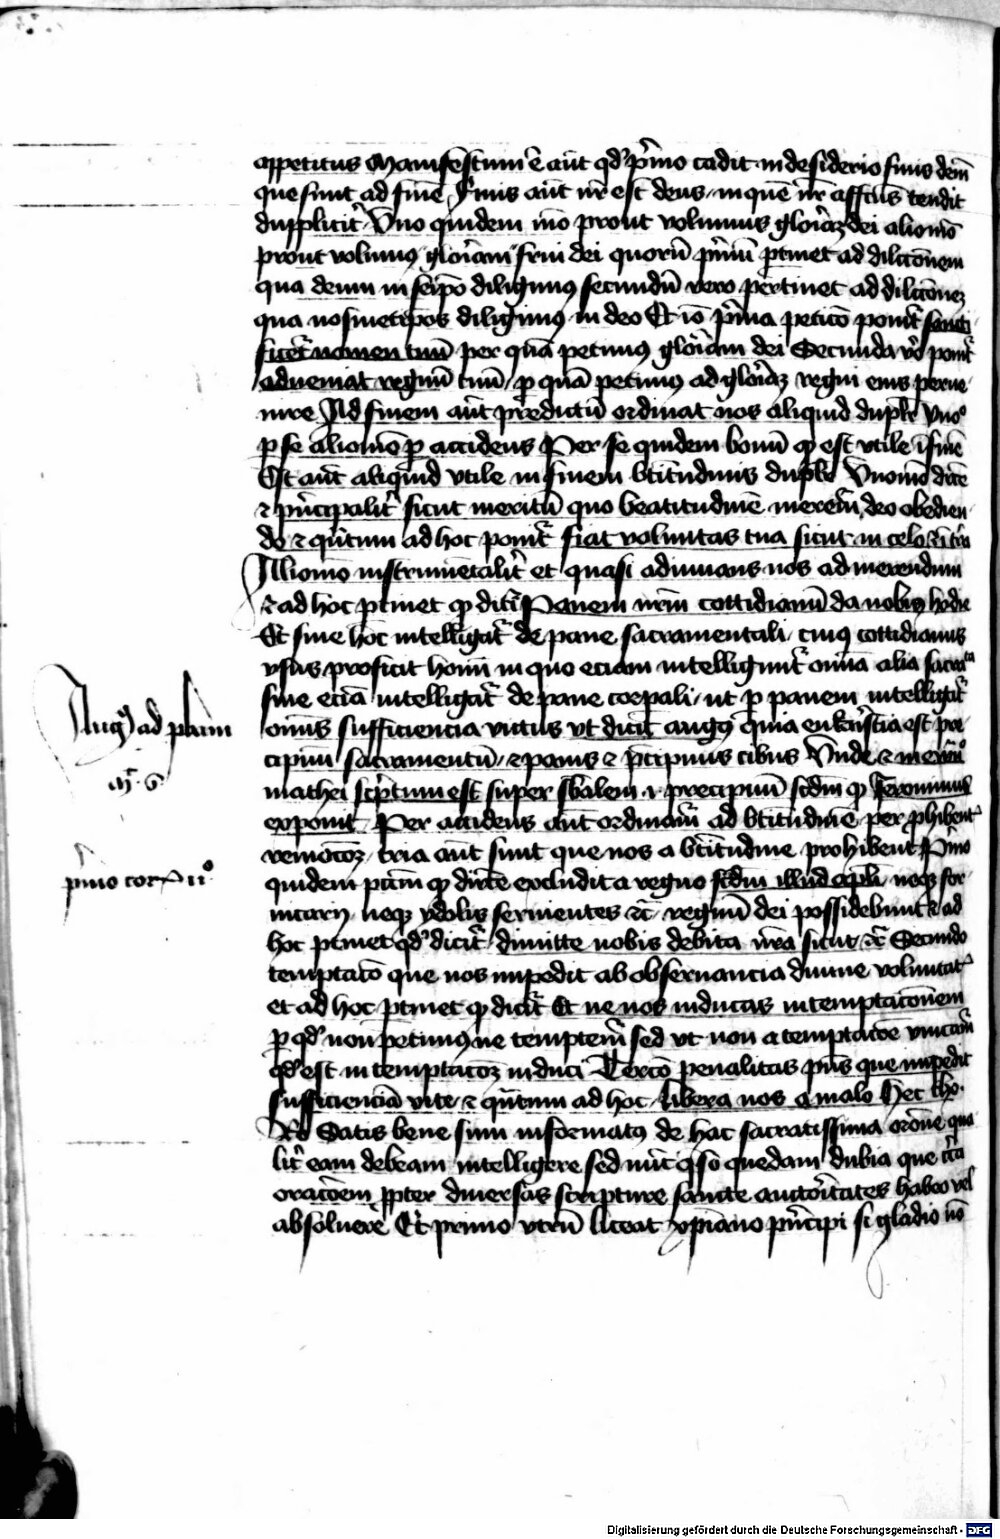 appetitus Manifestum ē aūt qd' p̄mo cadit in desiderio finis deīn
que sunt ad finē Finis aūt nr̄ est deus in quē nr̄ affctūs tendit
dupplicit̄ Vno quidem mō prout volumus gloīaʒ dei aliomō
prout volumus gloīam frui dei quorū p̄mū p̄tinet ad dilcc̄onem
qua deum in seip̄o diligimus secundū vero pertinet ad dilcc̄oneʒ
qua nosmetip̄os diligimus in deo Et iō p̄ma peticō ponit̄ sancti
ficet̄ nomen tuū per quā petimus gloīam dei Secunda v̄o ponit̄
adveniat regnū tuū p quā petimus ad gloīaʒ regni eius perue
nire Ad finem aūt predictū ordinat nos aliquid dupl̄r Vno°
p se aliomō p accidens Per se quidem bonū qd est vtile ī finē
Est aūt aliquid vtile in finem bt̄itudinis dupl̄r Vnomō dc̄e
⁊ p̄ncipalit̄ sicut meritū quo beatitudinē merem̄ deo obedien
do ⁊ qn̄tum ad hoc ponit̄ fiat voluntas tua sicut in celo ⁊ ī t̄ra
Aliomō instrumētalit̄ et quasi adiuuans nos ad merendum
⁊ ad hoc p̄tinet qd dicit̄ Panem nr̄m cottidianū da nobis hodie
Et siue hoc intelligat̄ de pane sacramentali cuius cottidianus
vsus proficit homī in quo eciam intelligunt̄ om̄ia alia sacr̄ta
siue eciā intelligat̄ de pane corpali ut p panem intelligat̄
om̄is sufficiencia victus vt dicit augus quia eukaristia est pre
cipuū sacramentū ⁊ panis ⁊ p̄cipuus cibus Vnde ⁊
mathei sc̄ptum est super sb̄alem .i. precipuū scdm qd Jeronimus
exponit Per accidens aūt ordinam̄ ad bt̄itudinē per phibent
remocōʒ tria aūt sunt que nos a bt̄itudine prohibent P̄mo
quidem pctm̄ qd dir̄cte excludit a regno scdm illud apl̄i neqʒ for
nicarij neqʒ ydolis seruientes ⁊c̄ regnū dei possidebunt ⁊ ad
hoc p̄tinet qd' dicit̄ dimitte nobis debita nr̄a sicut ⁊c̄ Secundo
temptacō que nos impedit ab obseruancia diuine voluntat̄
et ad hoc p̄tinet qd dicit̄ Et ne nos inducas in temptacōnem
p qd' non petimus ne temptem̄ sed vt non a temptacōe vincam̄
qd' est in temptacōʒ induci Tercō penalitas pn̄s que impedit
sufficienciā vite ⁊ qn̄tum ad hoc libera nos a malo Hec tho.
Rō Satis bene sum informatus de hac sacratissima orōne qua
lit̄ eam debeam intelligere sed nūc q̄so quedam dubia que c̄ca
oracōem ppter diuersas scripture sancte auctoritates habeo vel
absoluere Et primo vtrū liceat xpiano p̄ncipi si gladio nō
Augus ad
m̄t. 6
primo cor